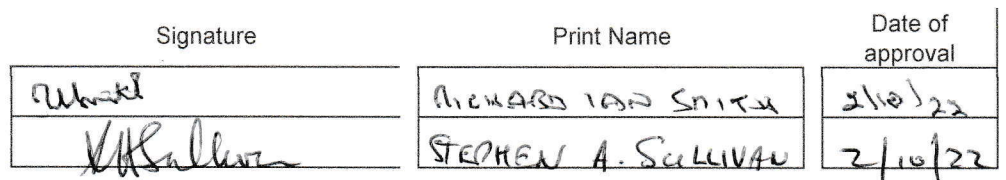 Signature Print Name Date of
approval
RICHARD IAN SMITH 2/10/22
STEPHEN A. SULLIVAN 2/10/22